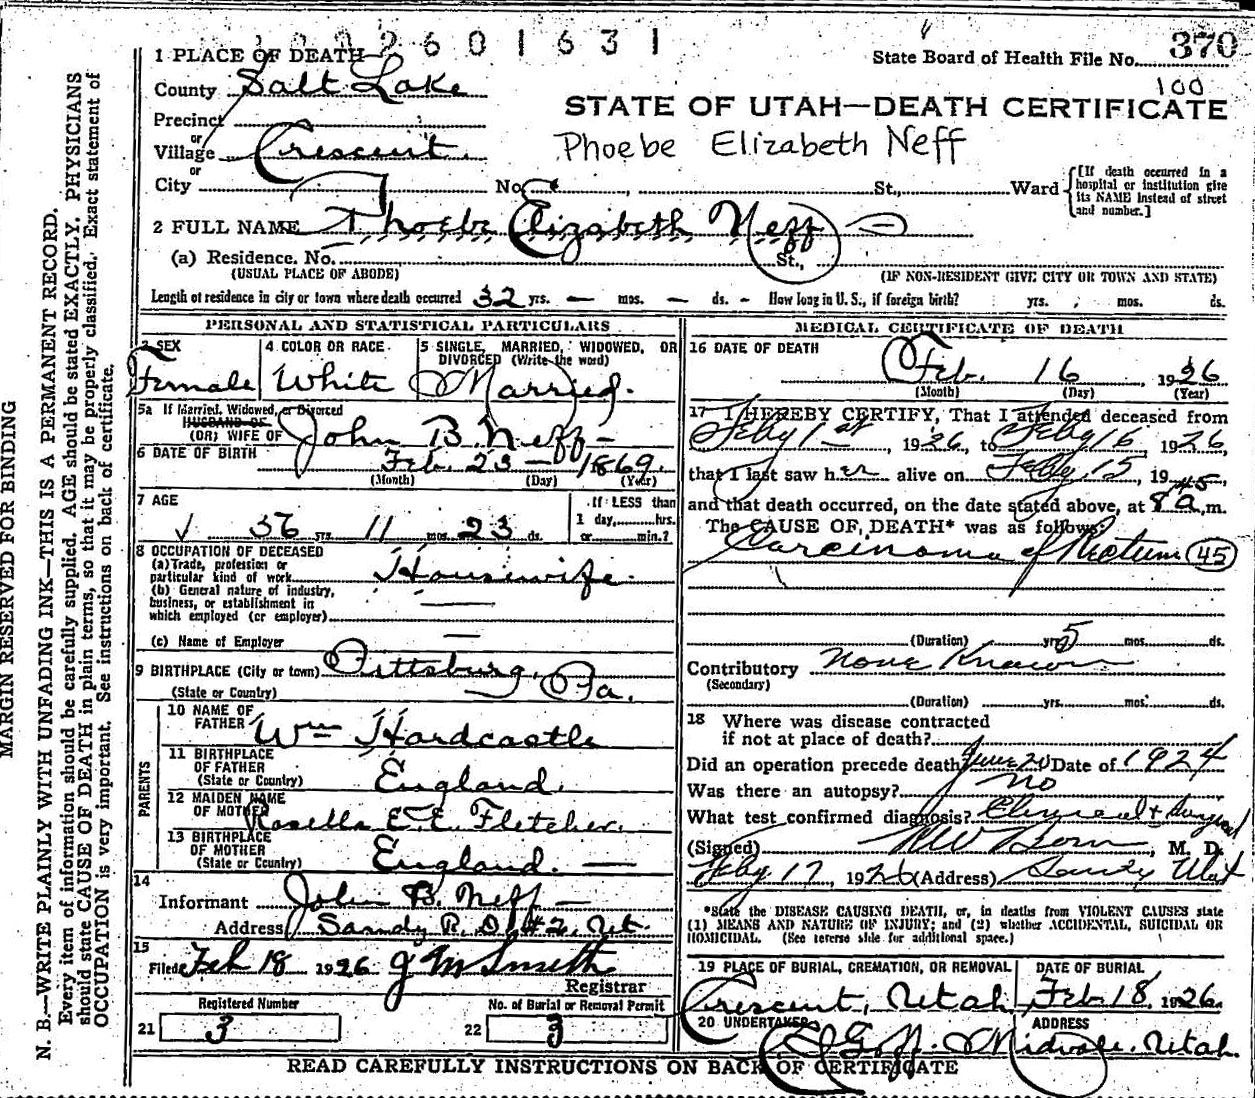 2601631
State Board of Health File No. 370
100
1 PLACE OF DEATH
County Salt Lake
STATE OF UTAH—DEATH CERTIFICATE
Precinct
or
Village Crescent.
Phoebe Elizabeth Neff
or
City No. St., Ward
[If death occurred in a hospital or institution give its NAME instead of street and number.]
2 FULL NAME Phoebe Elizabeth Neff
(a) Residence. No. St.,
(USUAL PLACE OF ABODE) (IF NON-RESIDENT GIVE CITY OR TOWN AND STATE)
Length of residence in city or town where death occurred 32 yrs. — mos. — ds. - How long in U. S., if foreign birth? yrs. mos. ds.
PERSONAL AND STATISTICAL PARTICULARS
3 SEX 4 COLOR OR RACE 5 SINGLE, MARRIED, WIDOWED, OR DIVORCED (Write the word)
Female White Married.
5a If Married, Widowed, or Divorced
HUSBAND OF
(OR) WIFE OF John B. Neff -
6 DATE OF BIRTH Feb. 23 — 1869.
(Month) (Day) (Year)
7 AGE If LESS than
56 yrs. 11 mos. 23 ds. 1 day, hrs.
or min.?
8 OCCUPATION OF DECEASED
(a) Trade, profession or particular kind of work Housewife.
(b) General nature of industry, business, or establishment in which employed (or employer) —
(c) Name of Employer —
9 BIRTHPLACE (City or town) Pittsburg, Pa.
(State or Country)
PARENTS
10 NAME OF FATHER Wm Hardcastle
11 BIRTHPLACE OF FATHER (State or Country) England.
12 MAIDEN NAME OF MOTHER Rosella E. E. Fletcher.
13 BIRTHPLACE OF MOTHER (State or Country) England. —
14
Informant John B. Neff -
Address Sandy R. D. #2, Ut.
15
Filed Feb 18 1926 J M Smith
Registrar
Registered Number No. of Burial or Removal Permit
21 3 22 3
MEDICAL CERTIFICATE OF DEATH
16 DATE OF DEATH
Feb. 16, 1926
(Month) (Day) (Year)
17 I HEREBY CERTIFY, That I attended deceased from
Feby 1st, 1926, to Feby 16, 1926,
that I last saw her alive on Feby 15, 19
and that death occurred, on the date stated above, at 8 45 a.m.
The CAUSE OF DEATH* was as follows:
Carcinoma of Rectum 45
(Duration) yrs. 5 mos. ds.
Contributory None Known
(Secondary)
(Duration) yrs. mos. ds.
18 Where was disease contracted
if not at place of death?
Did an operation precede death? June 20 Date of 1924
Was there an autopsy? no
What test confirmed diagnosis? Clinical + Surgical
(Signed) M. D.
Feby 17, 1926 (Address) Sandy Utah
*State the DISEASE CAUSING DEATH, or, in deaths from VIOLENT CAUSES state
(1) MEANS AND NATURE OF INJURY; and (2) whether ACCIDENTAL, SUICIDAL OR
HOMICIDAL. (See reverse side for additional space.)
19 PLACE OF BURIAL, CREMATION, OR REMOVAL DATE OF BURIAL
Crescent, Utah Feb. 18, 1926
20 UNDERTAKER ADDRESS
Goff. Midvale, Utah.
READ CAREFULLY INSTRUCTIONS ON BACK OF CERTIFICATE
MARGIN RESERVED FOR BINDING
N. B.—WRITE PLAINLY WITH UNFADING INK—THIS IS A PERMANENT RECORD.
Every item of information should be carefully supplied. AGE should be stated EXACTLY. PHYSICIANS
should state CAUSE OF DEATH in plain terms, so that it may be properly classified. Exact statement of
OCCUPATION is very important. See instructions on back of certificate.